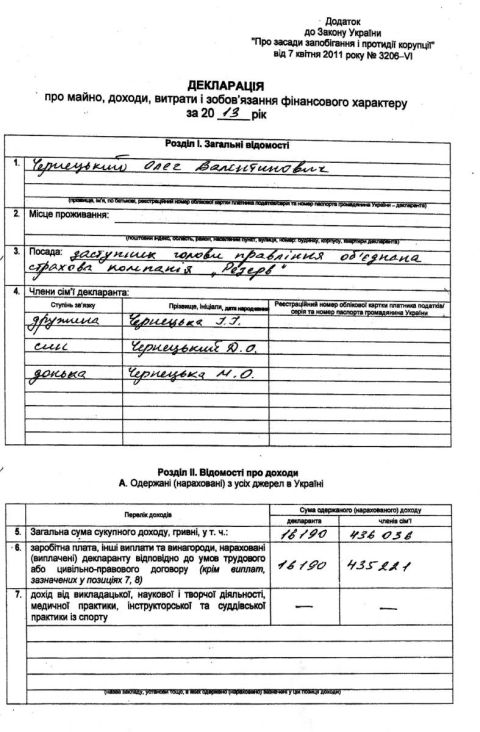 Додаток
до Закону України
"Про засади запобігання і протидії корупції"
від 7 квітня 2011 року № 3206–VI
ДЕКЛАРАЦІЯ
про майно, доходи, витрати і зобов'язання фінансового характеру
за 20 13 рік
Розділ I. Загальні відомості
1. Чернецький Олег Валентинович
(прізвище, ім'я, по батькові, реєстраційний номер облікової картки платника податків/серія та номер паспорта громадянина України – декларанта)
2. Місце проживання:
(поштовий індекс, область, район, населений пункт, вулиця, номер: будинку, корпусу, квартири декларанта)
3. Посада: заступник голови правління об'єднана
страхова компанія „Резерв"
4. Члени сім'ї декларанта:
Ступінь зв'язку Прізвище, ініціали, дата народження Реєстраційний номер облікової картки платника податків/
серія та номер паспорта громадянина України
дружина Чернецька І.І.
син Чернецький Д.О.
донька Чернецька М.О.
Розділ II. Відомості про доходи
А. Одержані (нараховані) з усіх джерел в Україні
Перелік доходів Сума одержаного (нарахованого) доходу
декларанта членів сім'ї
5. Загальна сума сукупного доходу, гривні, у т. ч.: 16190 436 036
6. заробітна плата, інші виплати та винагороди, нараховані
(виплачені) декларанту відповідно до умов трудового
або цивільно-правового договору (крім виплат,
зазначених у позиціях 7, 8) 16190 435221
7. дохід від викладацької, наукової і творчої діяльності,
медичної практики, інструкторської та суддівської
практики із спорту — —
(назва закладу, установи тощо, в яких одержано (нараховано) зазначені у цій позиції доходи)